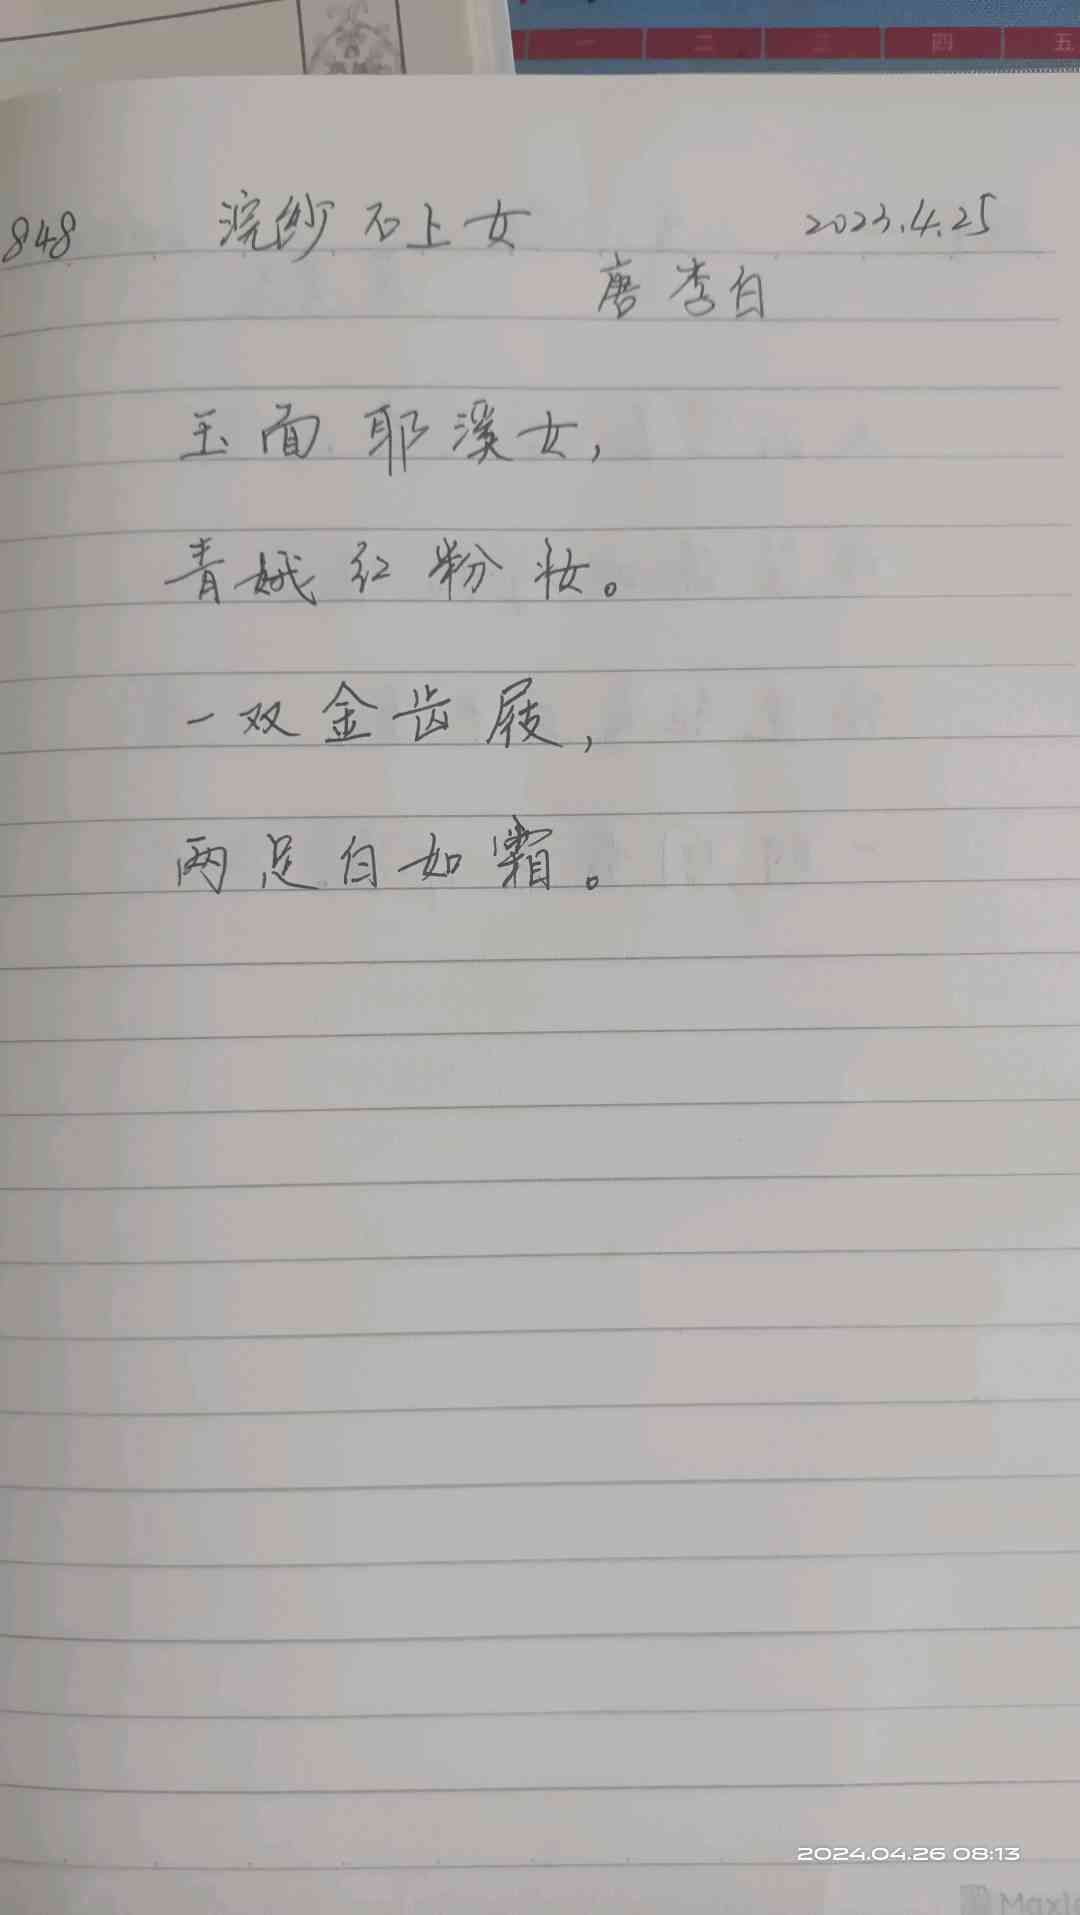 一 二 三 四 五
848 浣纱石上女 2023.4.25
唐 李白
玉面耶溪女，
青娥红粉妆。
一双金齿屐，
两足白如霜。
2024.04.26 08:13